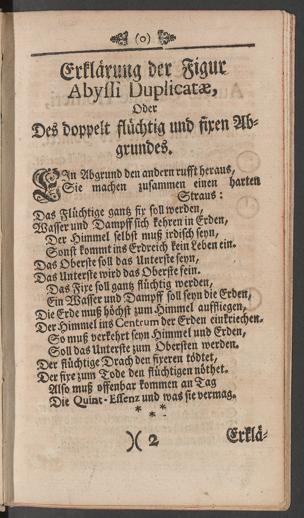 (o)
Erklärung der Figur
Abyssi Duplicatæ,
Oder
Des doppelt flüchtig und fixen Ab-
grundes.
EIn Abgrund den andern rufft heraus,
Sie machen zusammen einen harten
Straus:
Das Flüchtige gantz fix soll werden,
Wasser und Dampff sich kehren in Erden,
Der Himmel selbst muß irdisch seyn,
Sonst kommt ins Erdreich kein Leben ein.
Das Oberste soll das Unterste seyn,
Das Unterste wird das Oberste sein.
Das Fixe soll gantz flüchtig werden,
Ein Wasser und Dampff soll seyn die Erden,
Die Erde muß höchst zum Himmel auffliegen,
Der Himmel ins Centrum der Erden einkriechen.
So muß verkehrt seyn Himmel und Erden,
Soll das Unterste zum Obersten werden.
Der flüchtige Drach den fixeren tödtet,
Der fixe zum Tode den flüchtigen nöthet.
Also muß offenbar kommen an Tag
Die Quint-Essenz und was sie vermag.
* * *
)( 2
Erklä-